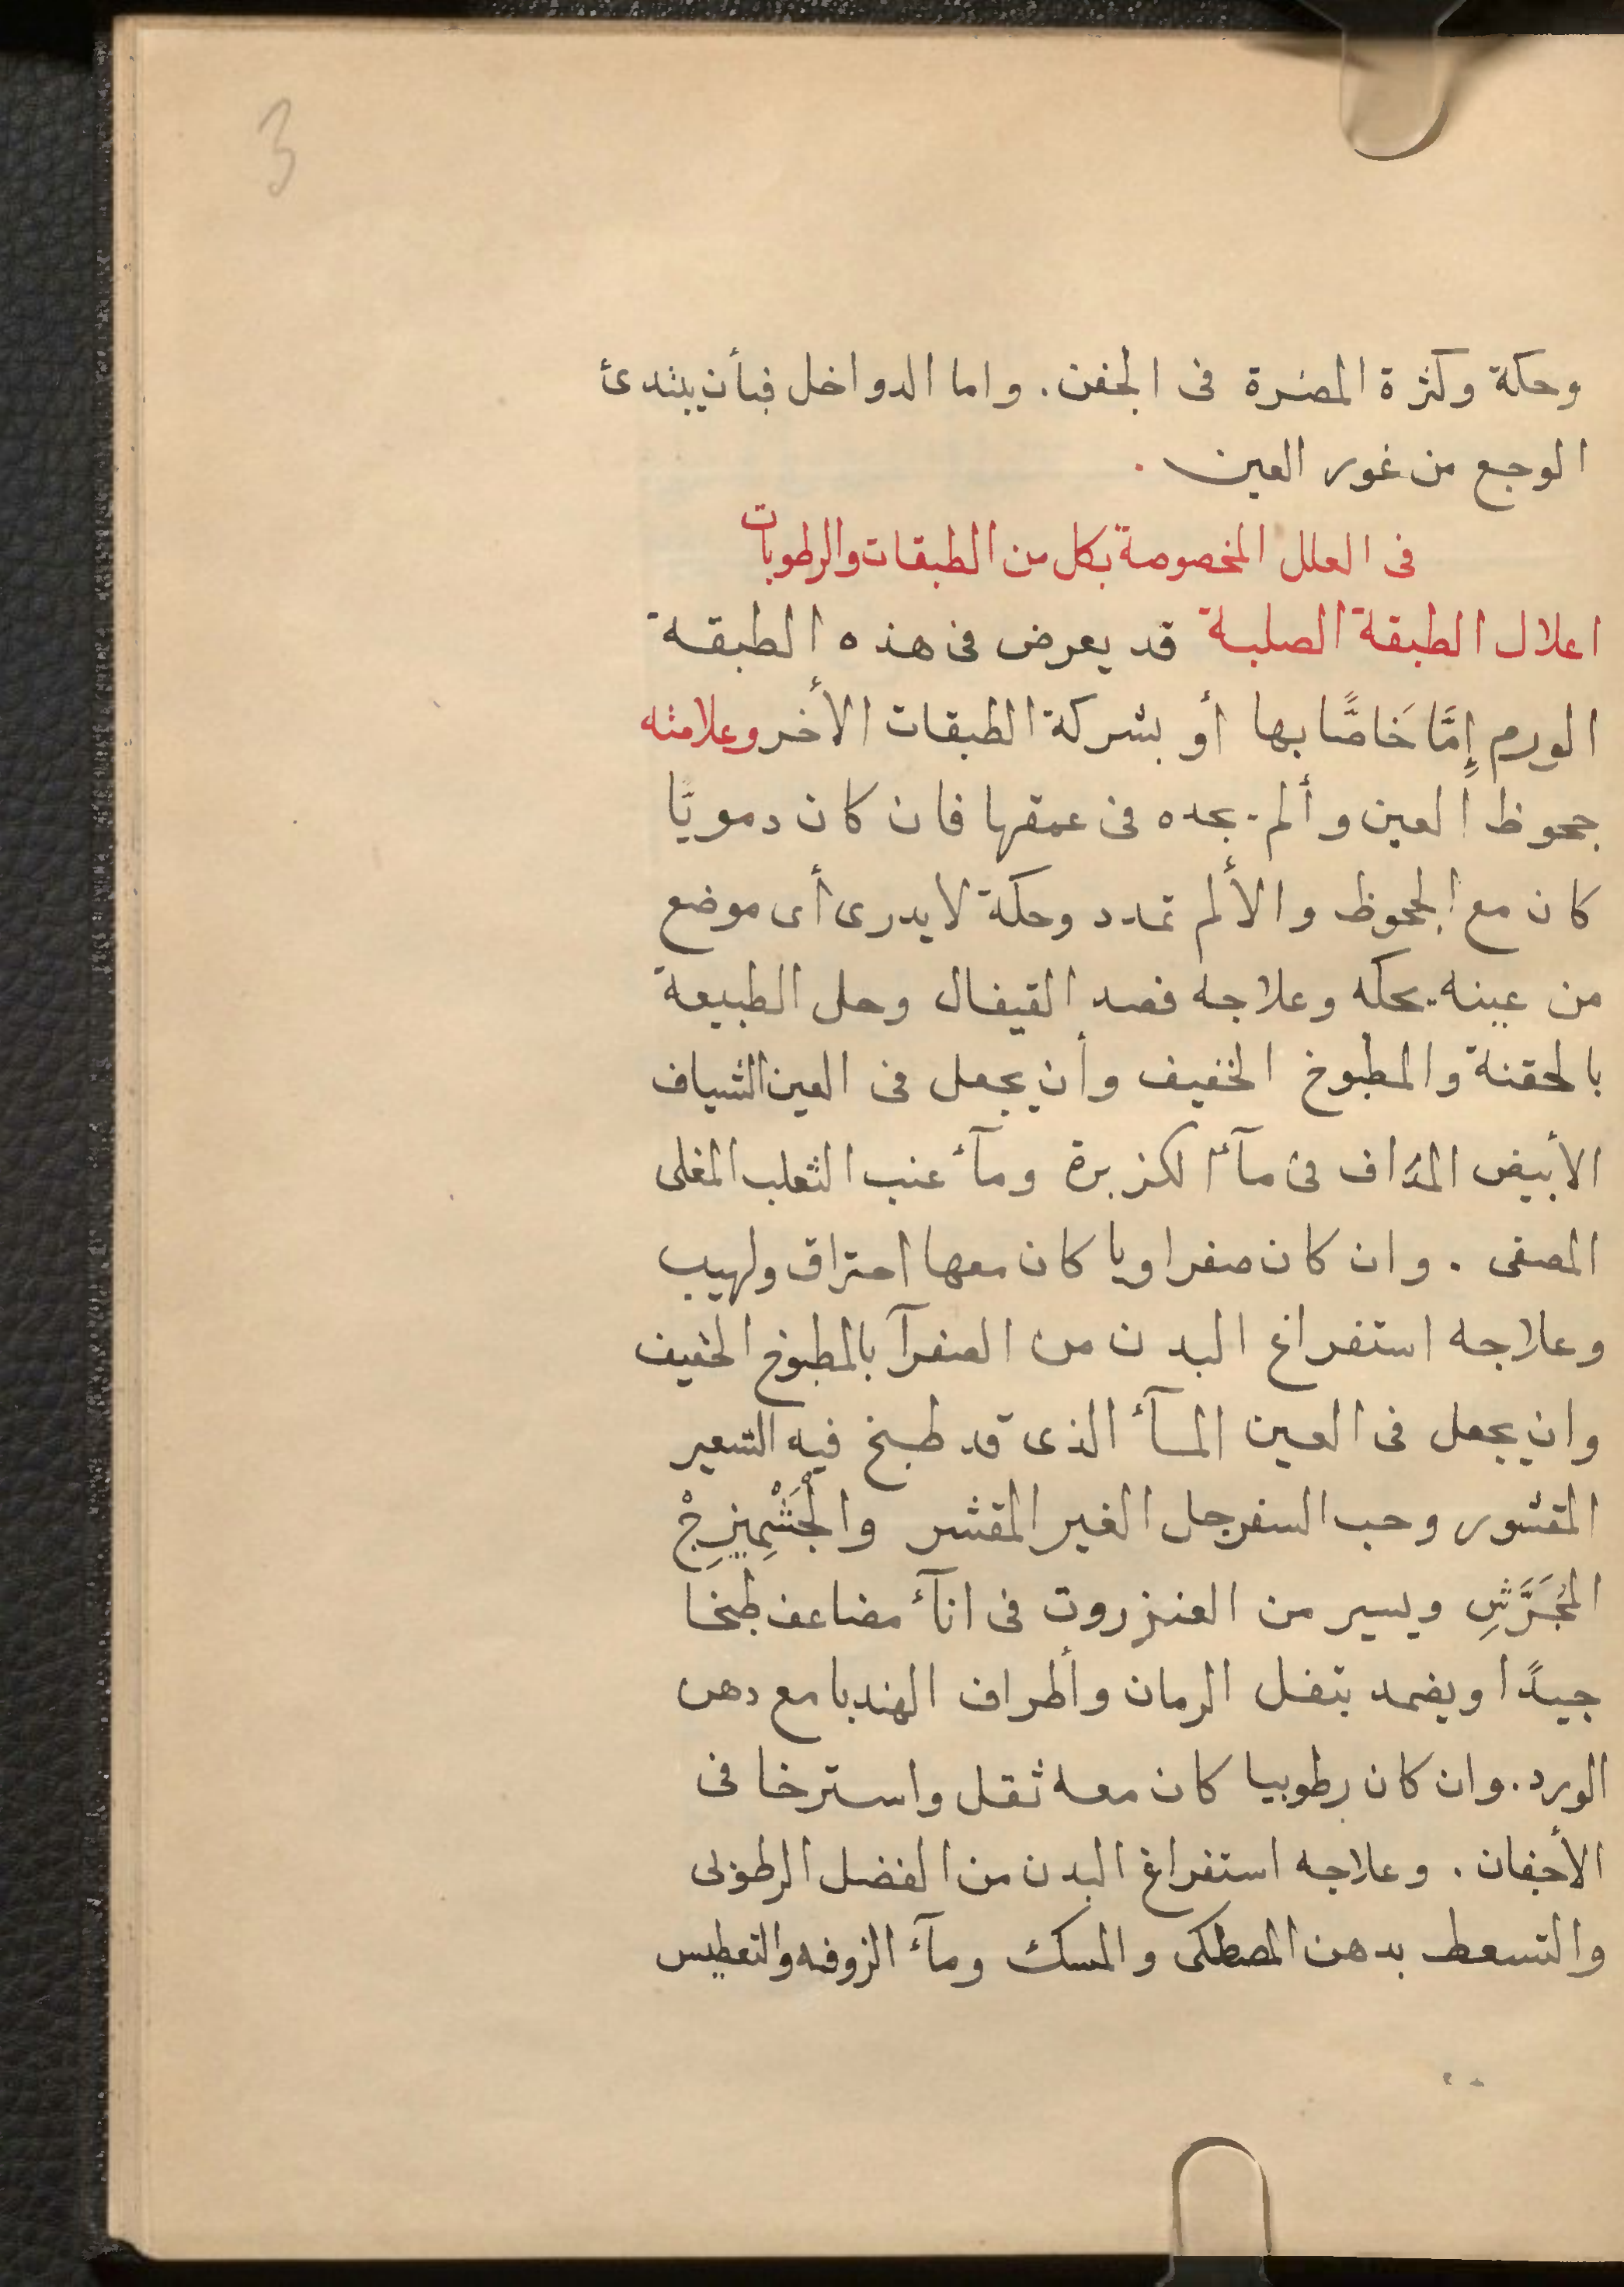 3
وحكة وكثرة المضرة فى الجفن. واما الدواخل فبأن يبتدئ
الوجع من غور العين .
فى العلل المخصوصة بكل من الطبقات والرطوبات
اعلال الطبقة الصلبة قد يعرض فى هذه الطبقة
الورم إِمَّا خَاصًّا بها أو بشركة الطبقات الأخر وعلامته
جحوظ العين وألم يجده فى عمقها فان كان دمويًّا
كان مع الجحوظ والألم تمدد وحكة لا يدرى أى موضع
من عينه يحكه وعلاجه فصد القيفال وحل الطبيعة
بالحقنة والمطبوخ الخفيف وأن يجعل فى العين الشياف
الأبيض المُدَاف فى مآء الكزبرة ومآء عنب الثعلب المغلى
المصفى . وان كان صفراويا كان معها احتراق ولهيب
وعلاجه استفراغ البدن من الصفرآ بالمطبوخ الخفيف
وان يجعل فى العين المآء الذى قد طبخ فيه الشعير
المقشور وحب السفرجل الغير المقشر والْجَشْمِيزِجْ
المُجَرَّشِ ويسير من العنزروت فى انآء مضاعف طبخا
جيدًا ويضمد بتفل الرمان وأطراف الهندبا مع دهن
الورد. وان كان رطوبيا كان معه ثقل واسترخا فى
الأجفان . وعلاجه استفراغ البدن من الفضل الرطوبى
والتسعط بدهن المصطكى والمسك ومآء الزوفه والتعطيس